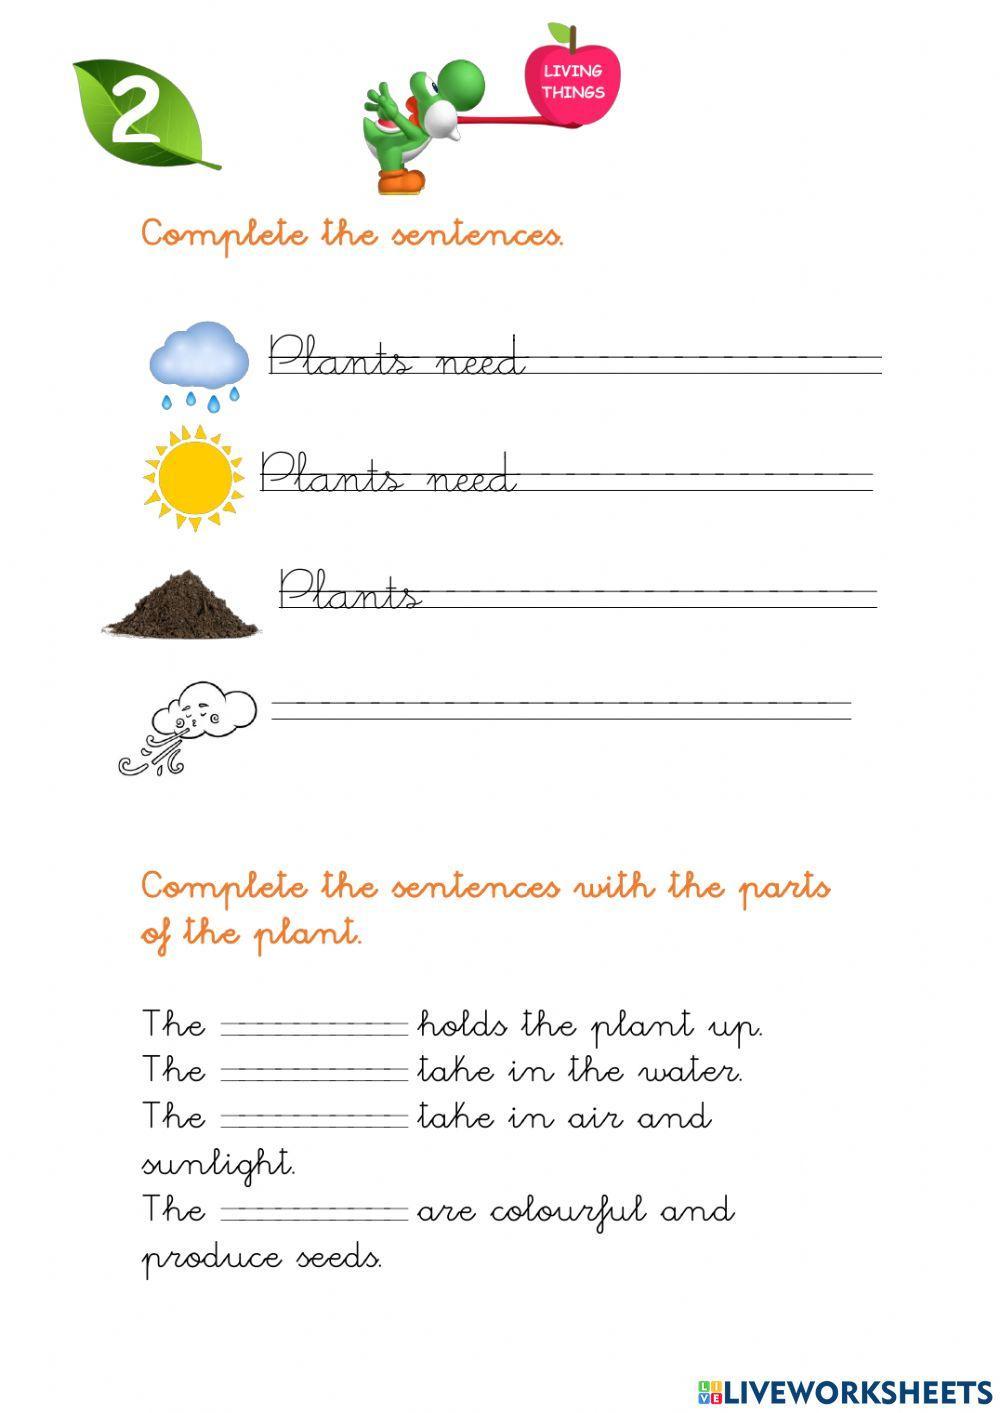 2
LIVING
THINGS
Complete the sentences.
Plants need
Plants need
Plants
Complete the sentences with the parts
of the plant.
The holds the plant up.
The take in the water.
The take in air and
sunlight.
The are colourful and
produce seeds.
LIVE LIVEWORKSHEETS